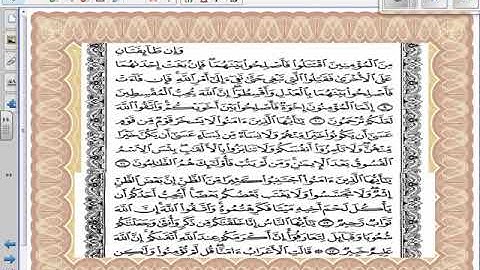 وَإِن طَآئِفَتَانِ
مِنَ ٱلْمُؤْمِنِينَ ٱقْتَتَلُوا۟ فَأَصْلِحُوا۟ بَيْنَهُمَا فَإِنۢ بَغَتْ إِحْدَىٰهُمَا
عَلَى ٱلْأُخْرَىٰ فَقَٰتِلُوا۟ ٱلَّتِى تَبْغِى حَتَّىٰ تَفِىٓءَ إِلَىٰٓ أَمْرِ ٱللَّهِ فَإِن فَآءَتْ
فَأَصْلِحُوا۟ بَيْنَهُمَا بِٱلْعَدْلِ وَأَقْسِطُوٓا۟ إِنَّ ٱللَّهَ يُحِبُّ ٱلْمُقْسِطِينَ
۝٩ إِنَّمَا ٱلْمُؤْمِنُونَ إِخْوَةٌ فَأَصْلِحُوا۟ بَيْنَ أَخَوَيْكُمْ وَٱتَّقُوا۟ ٱللَّهَ
لَعَلَّكُمْ تُرْحَمُونَ ۝١٠ يَٰٓأَيُّهَا ٱلَّذِينَ ءَامَنُوا۟ لَا يَسْخَرْ قَوْمٌ مِّن قَوْمٍ
عَسَىٰٓ أَن يَكُونُوا۟ خَيْرًا مِّنْهُمْ وَلَا نِسَآءٌ مِّن نِّسَآءٍ عَسَىٰٓ أَن يَكُنَّ خَيْرًا
مِّنْهُنَّ وَلَا تَلْمِزُوٓا۟ أَنفُسَكُمْ وَلَا تَنَابَزُوا۟ بِٱلْأَلْقَٰبِ بِئْسَ ٱلِٱسْمُ
ٱلْفُسُوقُ بَعْدَ ٱلْإِيمَٰنِ وَمَن لَّمْ يَتُبْ فَأُو۟لَٰٓئِكَ هُمُ ٱلظَّٰلِمُونَ ۝١١
يَٰٓأَيُّهَا ٱلَّذِينَ ءَامَنُوا۟ ٱجْتَنِبُوا۟ كَثِيرًا مِّنَ ٱلظَّنِّ إِنَّ بَعْضَ ٱلظَّنِّ
إِثْمٌ وَلَا تَجَسَّسُوا۟ وَلَا يَغْتَب بَّعْضُكُم بَعْضًا أَيُحِبُّ أَحَدُكُمْ أَن
يَأْكُلَ لَحْمَ أَخِيهِ مَيْتًا فَكَرِهْتُمُوهُ وَٱتَّقُوا۟ ٱللَّهَ إِنَّ ٱللَّهَ
تَوَّابٌ رَّحِيمٌ ۝١٢ يَٰٓأَيُّهَا ٱلنَّاسُ إِنَّا خَلَقْنَٰكُم مِّن ذَكَرٍ وَأُنثَىٰ وَجَعَلْنَٰكُمْ
شُعُوبًا وَقَبَآئِلَ لِتَعَارَفُوٓا۟ إِنَّ أَكْرَمَكُمْ عِندَ ٱللَّهِ أَتْقَىٰكُمْ إِنَّ ٱللَّهَ
عَلِيمٌ خَبِيرٌ ۝١٣ قَالَتِ ٱلْأَعْرَابُ ءَامَنَّا قُل لَّمْ تُؤْمِنُوا۟ وَلَٰكِن